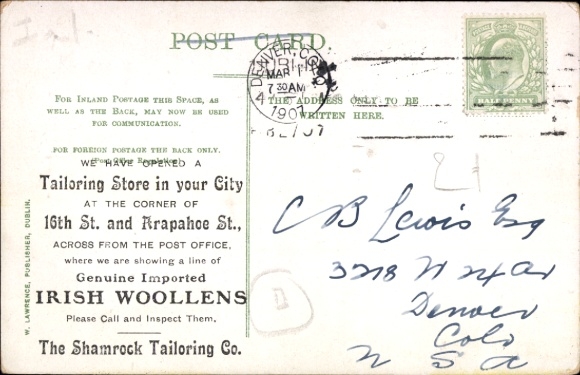 POST CARD.
FOR INLAND POSTAGE THIS SPACE, AS
WELL AS THE BACK, MAY NOW BE USED
FOR COMMUNICATION.
FOR FOREIGN POSTAGE THE BACK ONLY.
(Post Office Regulation).
WE HAVE OPENED A
Tailoring Store in your City
AT THE CORNER OF
16th St. and Arapahoe St.,
ACROSS FROM THE POST OFFICE,
where we are showing a line of
Genuine Imported
IRISH WOOLLENS
Please Call and Inspect Them.
The Shamrock Tailoring Co.
W. LAWRENCE, PUBLISHER, DUBLIN.
THE ADDRESS ONLY TO BE
WRITTEN HERE.
DENVER, COLO.
MAR 1
7 30 AM
1907
HALF PENNY
C B Lewis Esq
3218 W 24 Av
Denver
Colo
U S A
D